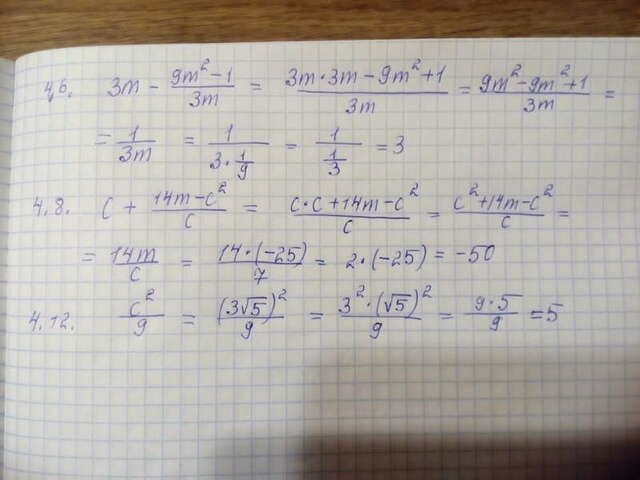 4.6. 3m - \frac{9m^2-1}{3m} = \frac{3m·3m-9m^2+1}{3m} = \frac{9m^2-9m^2+1}{3m} =
= \frac{1}{3m} = \frac{1}{3·\frac{1}{9}} = \frac{1}{\frac{1}{3}} = 3
4.8. c + \frac{14m-c^2}{c} = \frac{c·c+14m-c^2}{c} = \frac{c^2+14m-c^2}{c} =
= \frac{14m}{c} = \frac{14·(-25)}{7} = 2·(-25) = -50
4.12. \frac{c^2}{9} = \frac{(3\sqrt{5})^2}{9} = \frac{3^2·(\sqrt{5})^2}{9} = \frac{9·5}{9} = 5